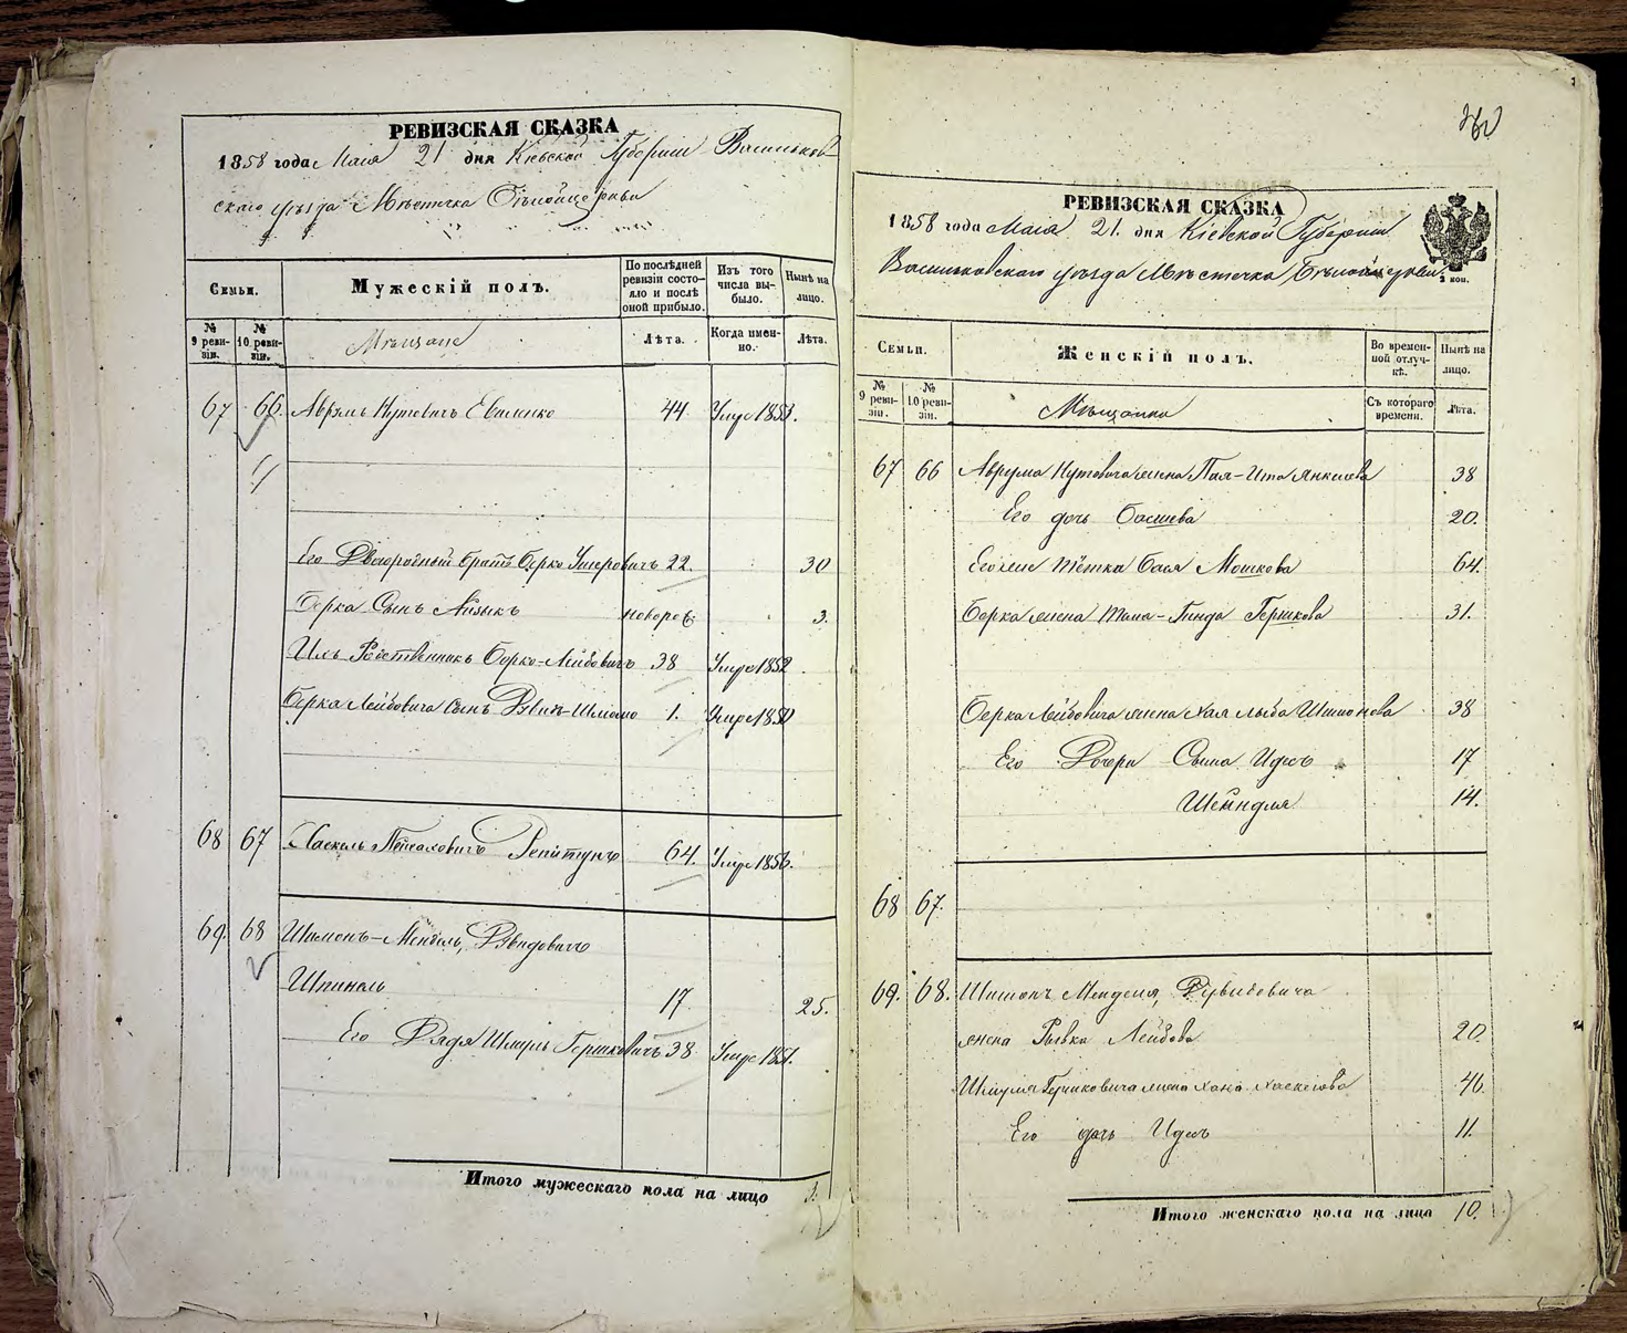 РЕВИЗСКАЯ СКАЗКА
1858 года Маія 21 дня Кіевской Губерніи Васильков-
скаго уѣзда Мѣстечка Бѣлойцеркви
Семьи.
Мужескій полъ.
По послѣдней ревизіи состо-
яло и послѣ оной прибыло.
Изъ того числа вы-
было.
Нынѣ на лицо.
№ 9 реви-
зіи.
№ 10 реви-
зіи.
Мѣщане
Лѣта.
Когда имен-
но.
Лѣта.
67 66. Аврумъ Нутовичъ 44 Умре 1853.
Его Двоюродный братъ Берко Ушеровичъ 22. 30
Берка Сынъ Айзыкъ новорож. 3.
Ихъ Родственникъ Берко-Лейбовичъ 38 Умре 1852
Берка Лейбовича Сынъ Дувид-Шлиомо 1. Умре 1850
68 67 Хаскель 64. Умре 1856.
69. 68 Шимонъ-Мендель, Дувидовичъ
Шпиналь 17. 25.
Его Дядя Шмуль Гершковичъ 38 Умре 1851.
Итого мужескаго пола на лицо 3.
РЕВИЗСКАЯ СКАЗКА
1858 года Маія 21. дня Кіевской Губерніи
Васильковскаго уѣзда Мѣстечка Бѣлойцеркви.
2 коп.
Семьи.
Женскій полъ.
Во времен-
ной отлуч-
кѣ.
Нынѣ на лицо.
№ 9 реви-
зіи.
№ 10 реви-
зіи.
Мѣщанки
Съ котораго времени.
Лѣта.
67 66 Аврума Нутовича жена Пая-Ита Янкелева 38
Его дочь Басшева 20.
Его же тётка Бася Мошкова 64.
Берка жена Гинда Гершкова 31.
Берка Лейбовича жена Хая Шимонова 38
Его Дочери Сима Идесъ 17
Шейндля 14.
68 67.
69. 68. Шимонъ Менделя, Дувидовича
жена Рывка Лейбова 20.
Шмуля Гершковича жена Хана Хаскелева 46.
Его дочь Идесъ 11.
Итого женскаго пола на лицо 10.